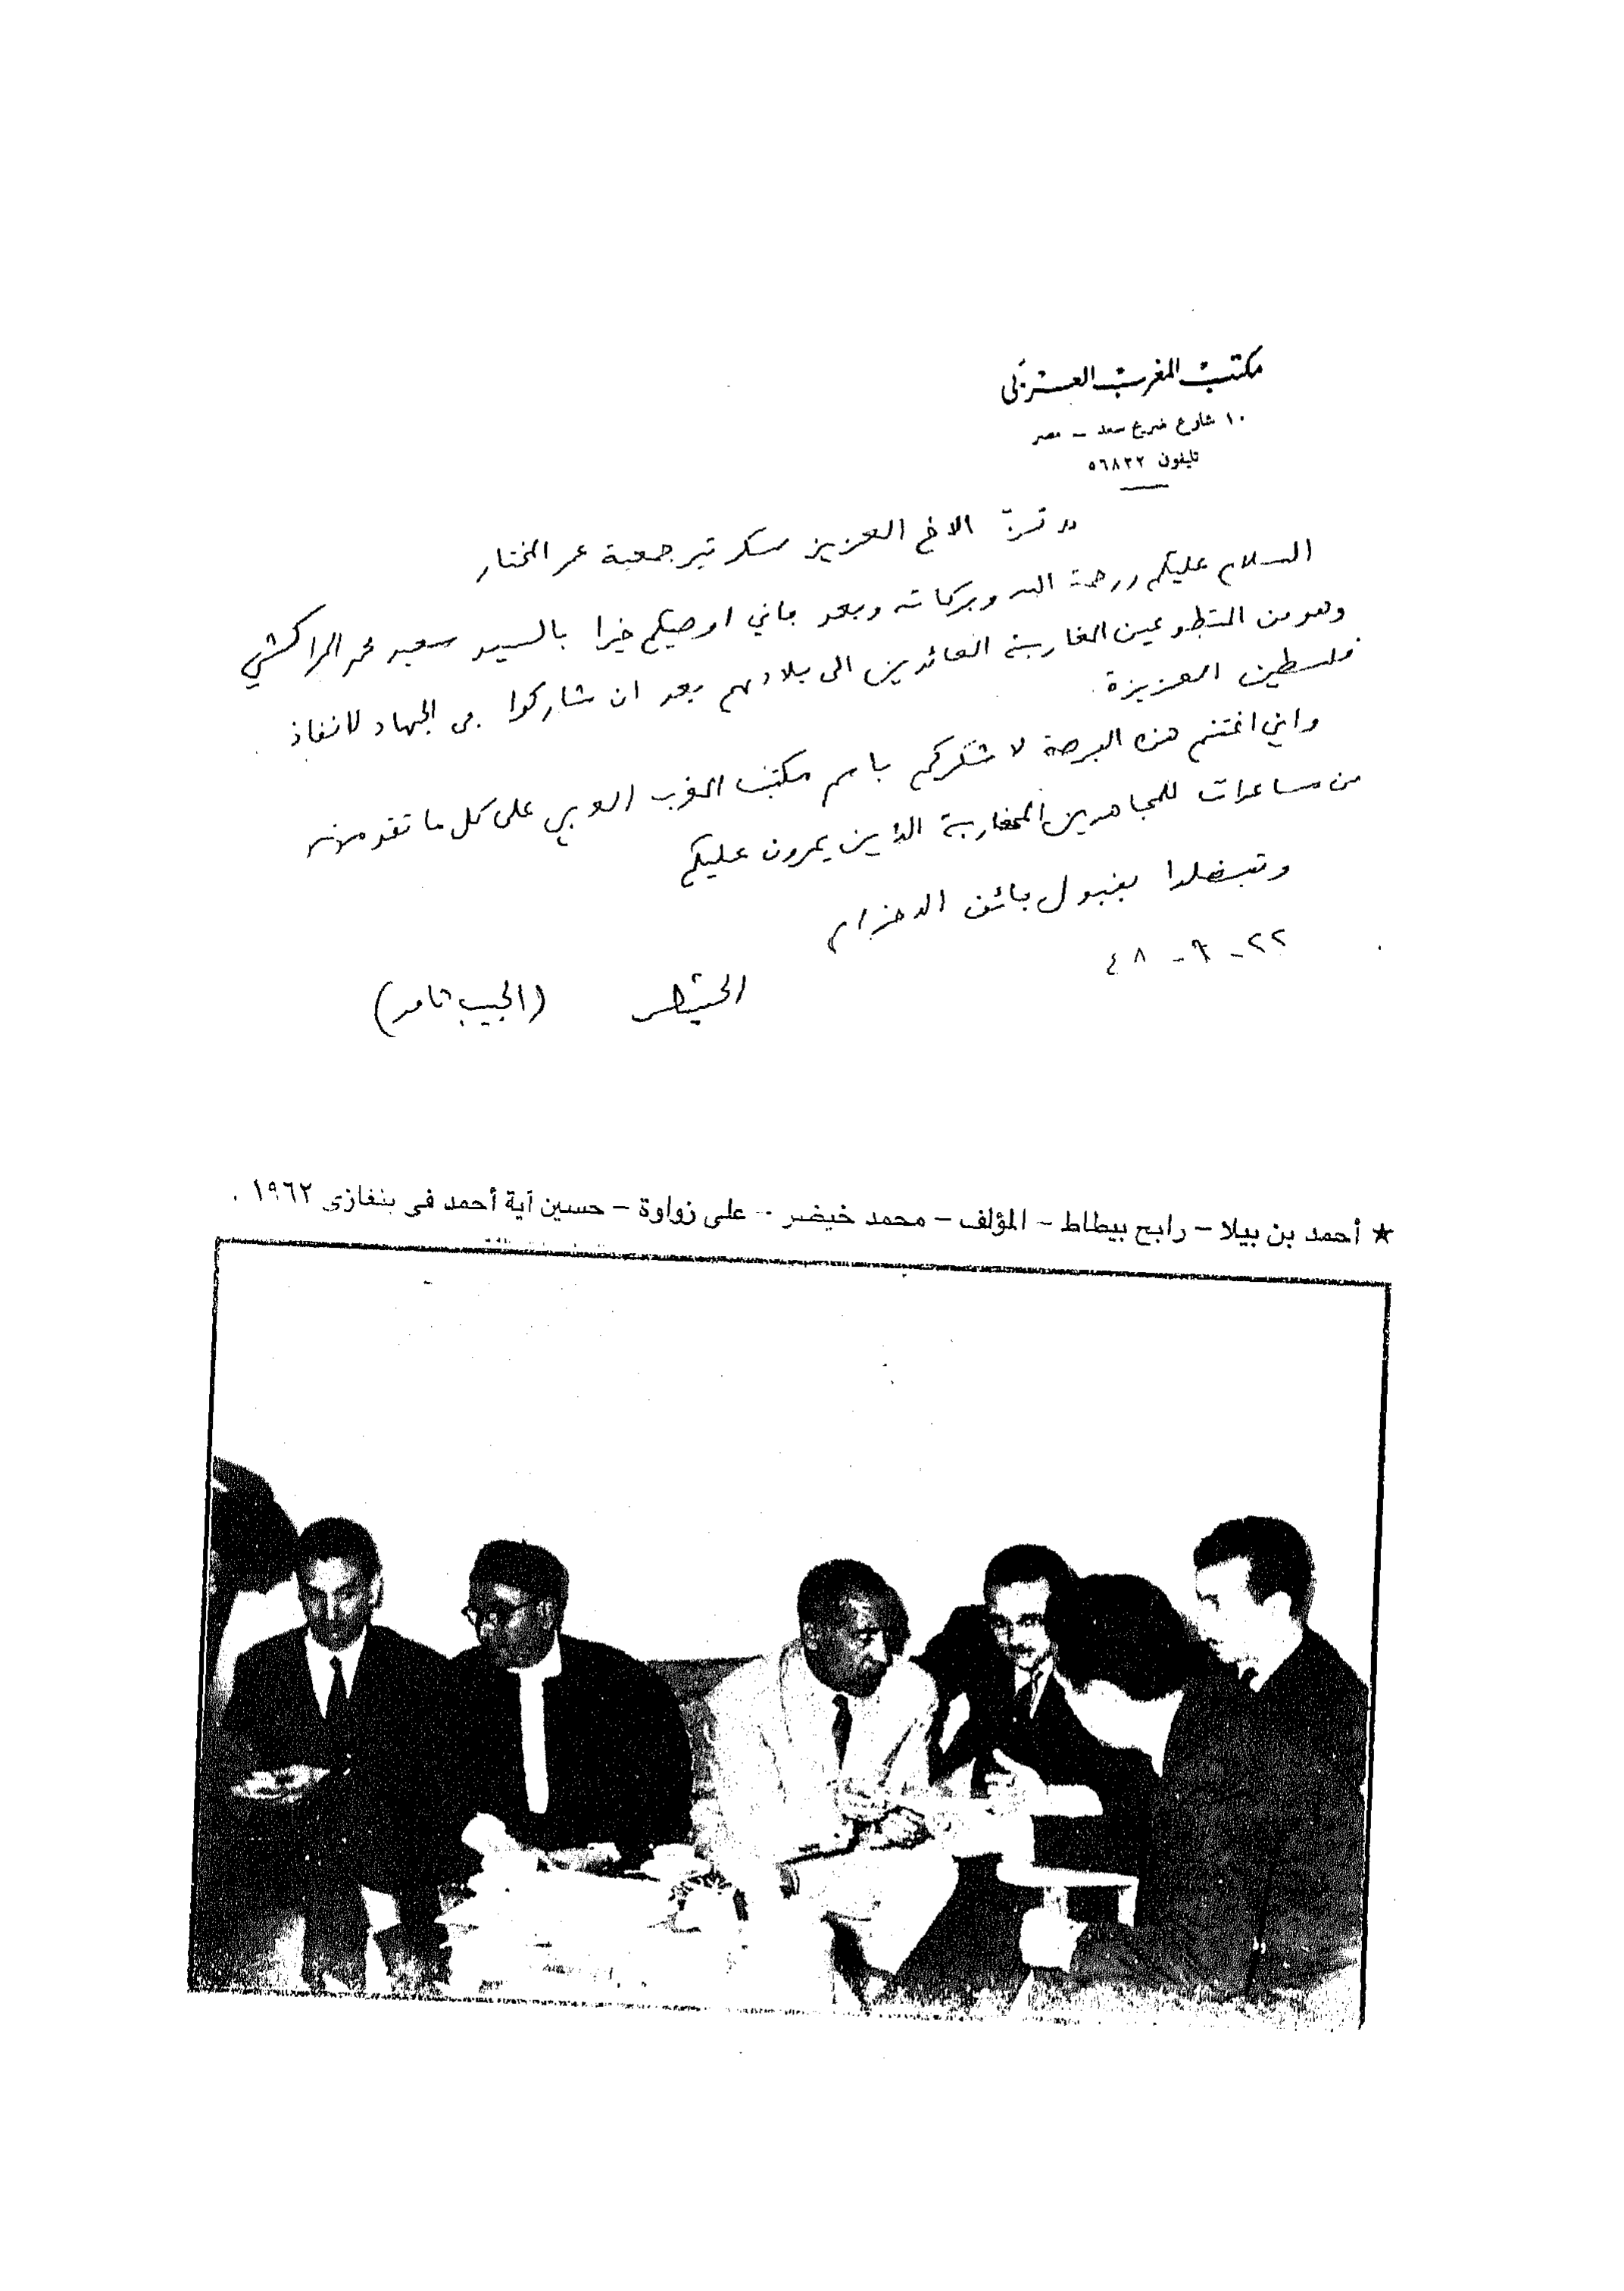 مكتب المغرب العربي
١٠ شارع ضريح سعد – مصر
تليفون ٥٦٨٣٢
حضرة الاخ العزيز سكرتير جمعية عمر المختار
السلام عليكم ورحمة الله وبركاته وبعد فاني اوصيكم خيرا بالسيد سعيد محمد المراكشي
وهو من المتطوعين المغاربة العائدين الى بلادهم بعد ان شاركوا في الجهاد لانقاذ
فلسطين العزيزة.
واني اغتنم هذه الفرصة لاشكركم باسم مكتب المغرب العربي على كل ما تقدمونه
من مساعدات للمجاهدين المغاربة الذين يمرون عليكم
وتفضلوا بقبول فائق الاحترام
٢٢ - ٩ - ٤٨
(الحبيب ثامر)
★ أحمد بن بيلا – رابح بيطاط – المؤلف – محمد خيضر – على زواوة – حسين آية أحمد فى بنغازى ١٩٦٢ .